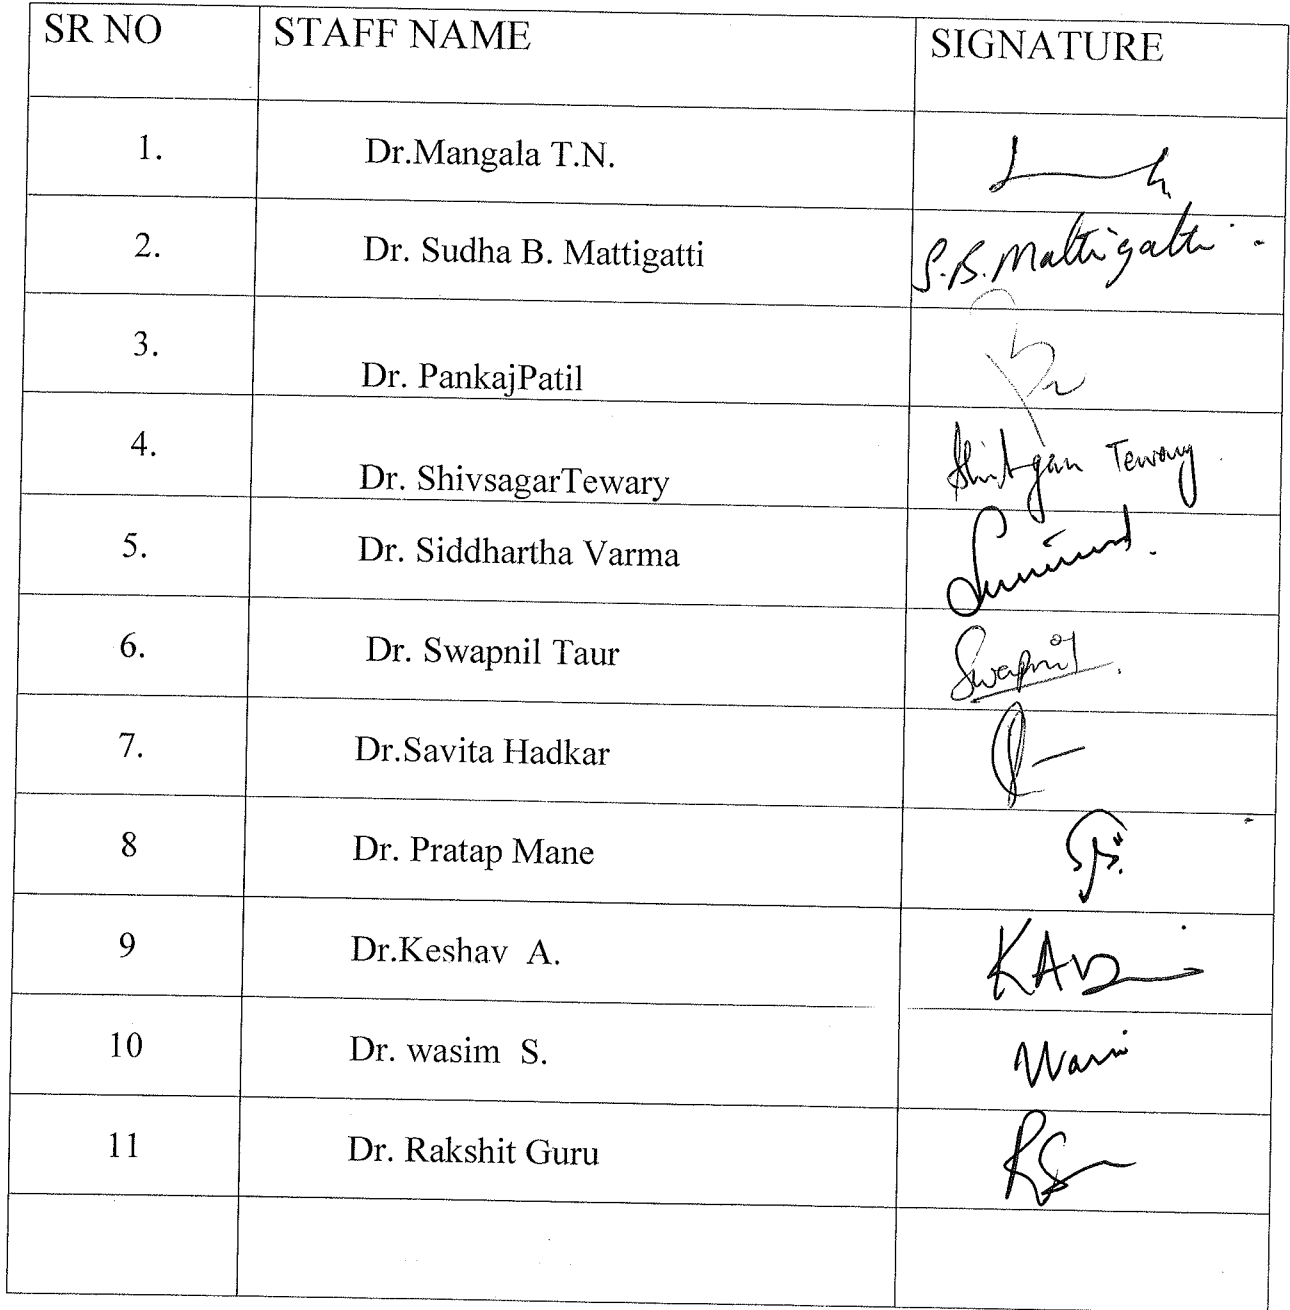 SR NO STAFF NAME SIGNATURE
1. Dr.Mangala T.N.
2. Dr. Sudha B. Mattigatti S.B. Mattigatti
3. Dr. PankajPatil
4. Dr. ShivsagarTewary Tewary
5. Dr. Siddhartha Varma
6. Dr. Swapnil Taur Swapnil
7. Dr.Savita Hadkar
8 Dr. Pratap Mane
9 Dr.Keshav A.
10 Dr. wasim S.
11 Dr. Rakshit Guru